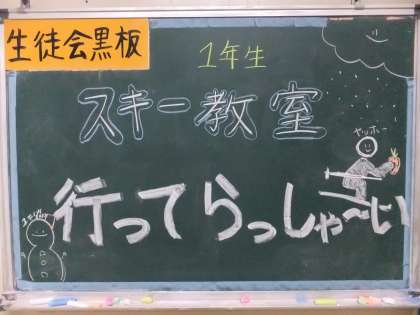 生徒会黒板
1年生
スキー教室
ヤッホー
行ってらっしゃ〜い